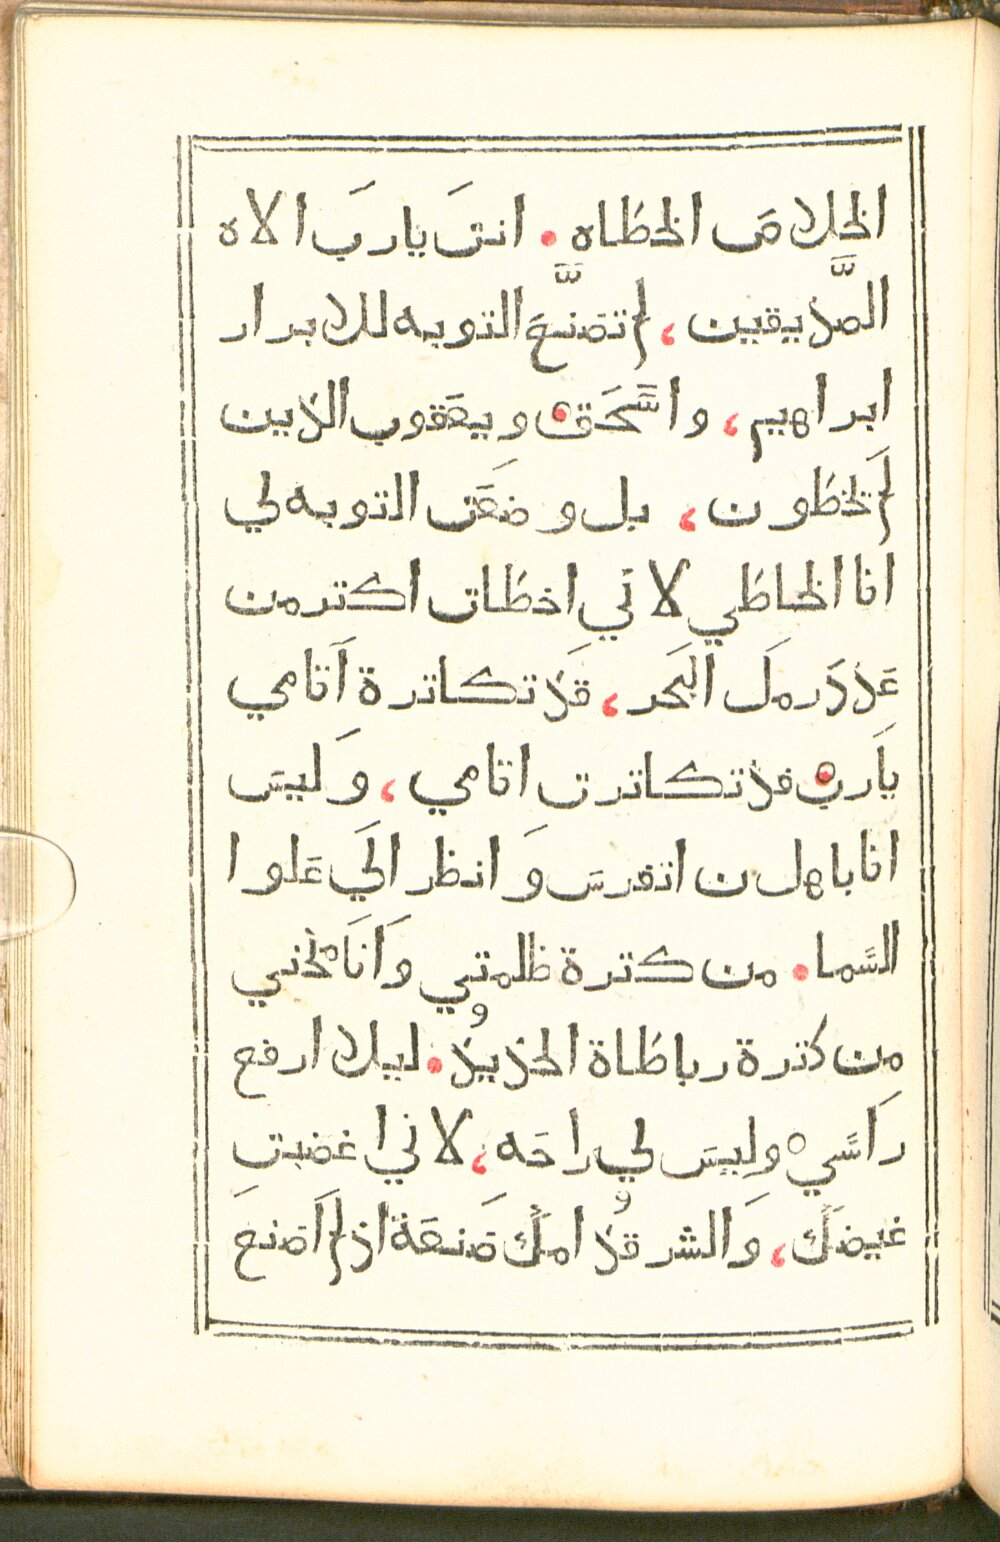 الخلاص الخطاه. انت يارب الاه
الصديقين، لم تصنع التوبه للابرار
ابراهيم، واسحق ويعقوب الذين
لم تخطون، بل وضعت التوبه لي
انا الخاطي لاني اخطات اكتر من
عدد رمل البحر، قد تكاترة اتامي
يارب قد تكاترت اتامي، وليس
انا باهل ن اتفرس وانظر الي علوا
السما. من كترة ظلمتي وانا منحني
من كترة رباطاة الحديد. ليلا ارفع
راسي وليس لي راحه، لاني اغضبت
غيضك، والشر قد امك صنعة اذ لم اصنع